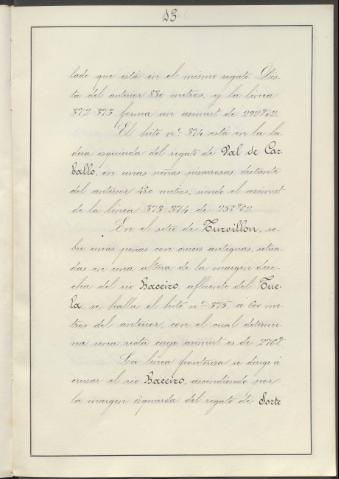 53
lado que está en el mismo regato. Dis-
ta del anterior 830 metros, y la línea
372 373 forma un azimut de
El hito nº 374 está en la la-
dera izquierda del regato de Val de Car-
ballo, en unas peñas pizarrosas, distante
del anterior 450 metros, siendo el azimut
de la línea 373-374 de
En el sitio de Turvillon, so-
bre unas peñas con cruces antiguas, situa-
das en una altura de la margen dere-
cha del río Baceiro, afluente del Tue-
la, se halla el hito nº 375, a me-
tros del anterior, con el cual determi-
na una recta cuyo azimut es de
La línea fronteriza se dirige á
cruzar el río Baceiro, ascendiendo por
la margen izquierda del regato de Sorte